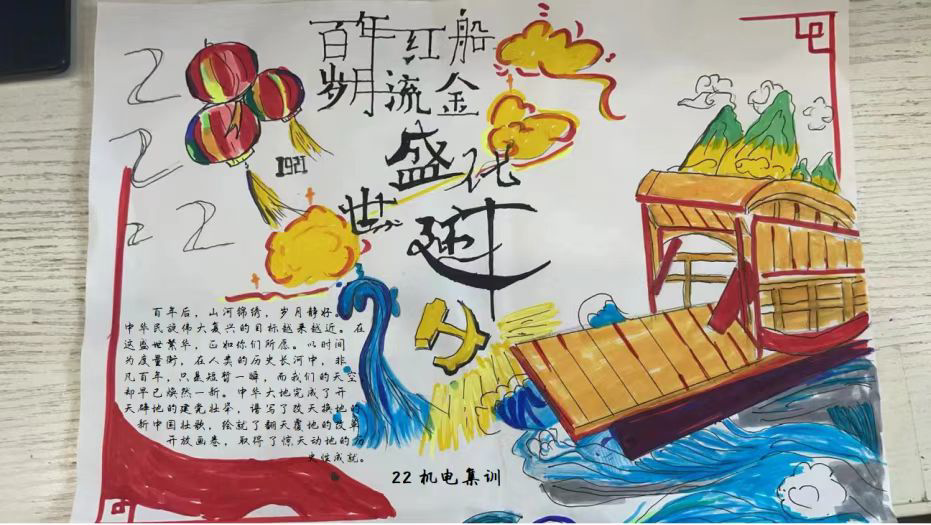 百年红船
岁月流金
1921
盛世
百年后，山河锦绣，岁月静好。
中华民族伟大复兴的目标越来越近。在
这盛世繁华，正如你们所愿。以时间
为度量衡，在人类的历史长河中，非
凡百年，只是短暂一瞬，而我们的天空
却早已焕然一新。中华大地完成了开
天辟地的建党壮举，谱写了改天换地的
新中国壮歌，绘就了翻天覆地的改革
开放画卷，取得了惊天动地的历
史性成就。
22机电集训